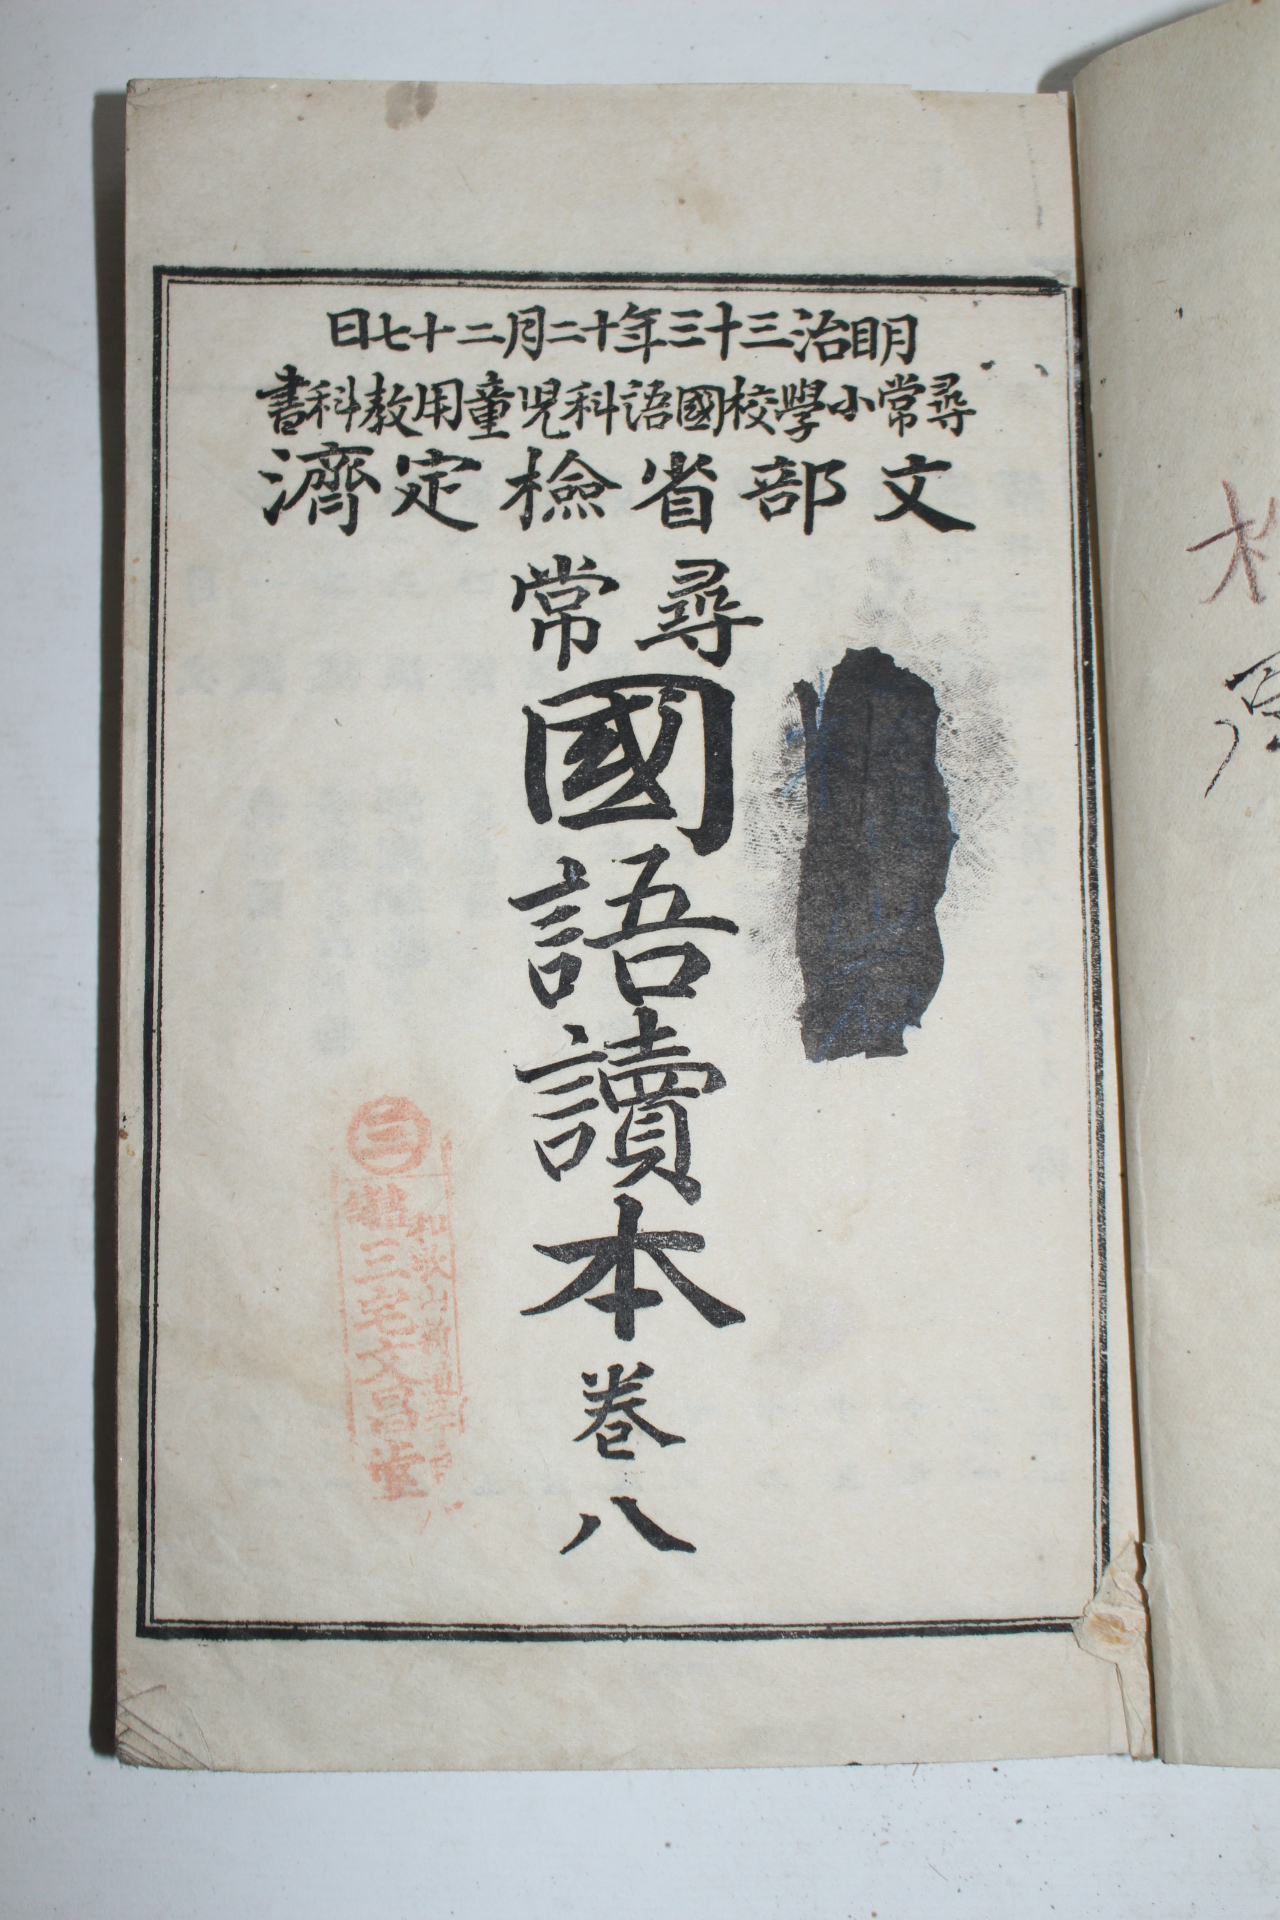 明治三十三年十二月二十七日
尋常小學校國語科兒童用教科書
文部省檢定濟
尋常
國語讀本
巻八
三
三宅文昌堂